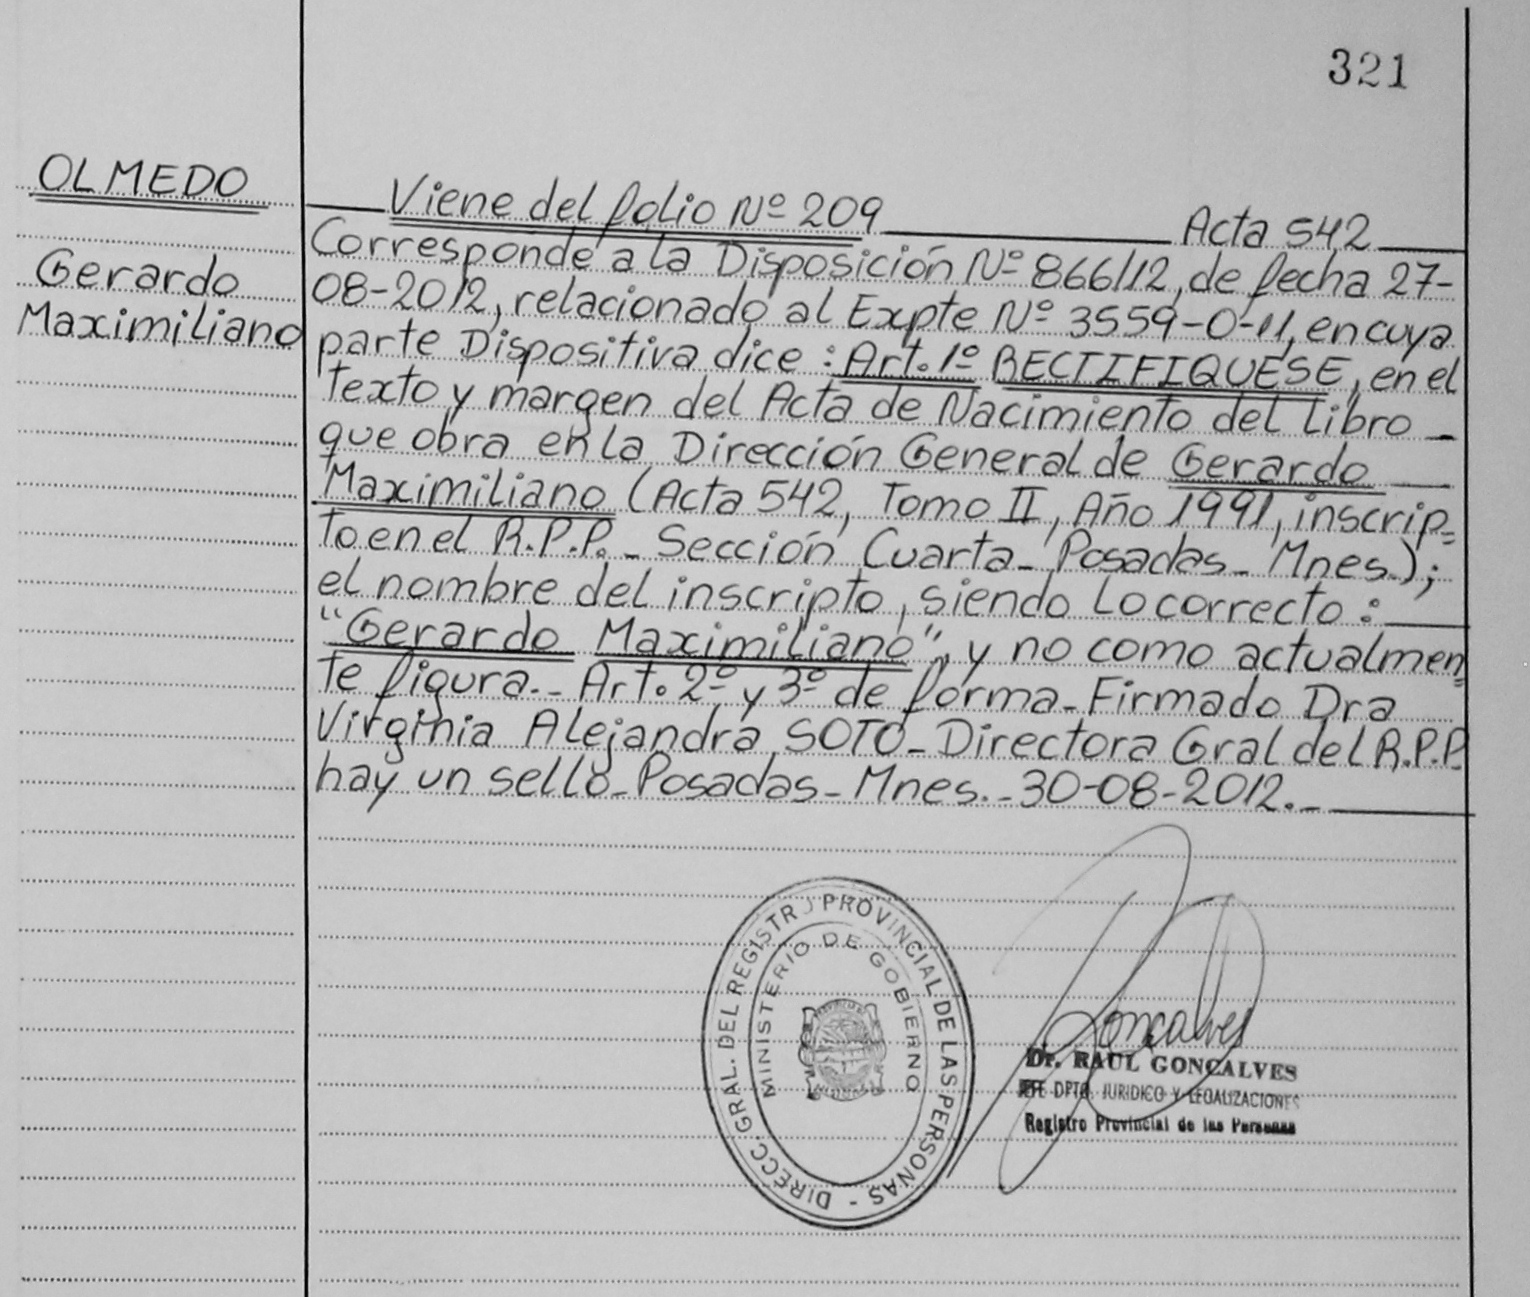 321
OLMEDO
Gerardo
Maximiliano
Viene del folio Nº 209 Acta 542
Corresponde a la Disposición Nº 866/12, de fecha 27-
08-2012, relacionado al Expte Nº 3559-O-11, en cuya
parte Dispositiva dice: Art. 1º RECTIFIQUESE, en el
texto y margen del Acta de Nacimiento del Libro
que obra en la Dirección General de Gerardo
Maximiliano (Acta 542, Tomo II, Año 1991, inscrip=
to en el R.P.P. - Sección Cuarta - Posadas - Mnes.);
el nombre del inscripto, siendo lo correcto:
"Gerardo Maximiliano", y no como actualmen=
te figura.- Art. 2º y 3º de forma - Firmado Dra
Virginia Alejandra SOTO - Directora Gral del R.P.P.
hay un sello - Posadas - Mnes. - 30-08-2012. -
DIRECC. GRAL. DEL REGISTRO PROVINCIAL DE LAS PERSONAS -
MINISTERIO DE GOBIERNO
Goncalves
Dr. RAUL GONCALVES
JEFE DPTO. JURIDICO Y LEGALIZACIONES
Registro Provincial de las Personas